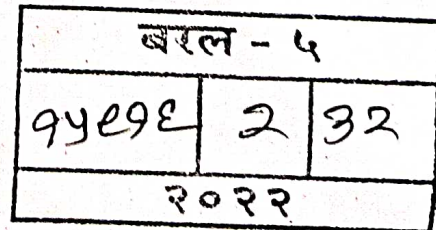 बरल - ५
१५९१६ २ ३२
२०२२